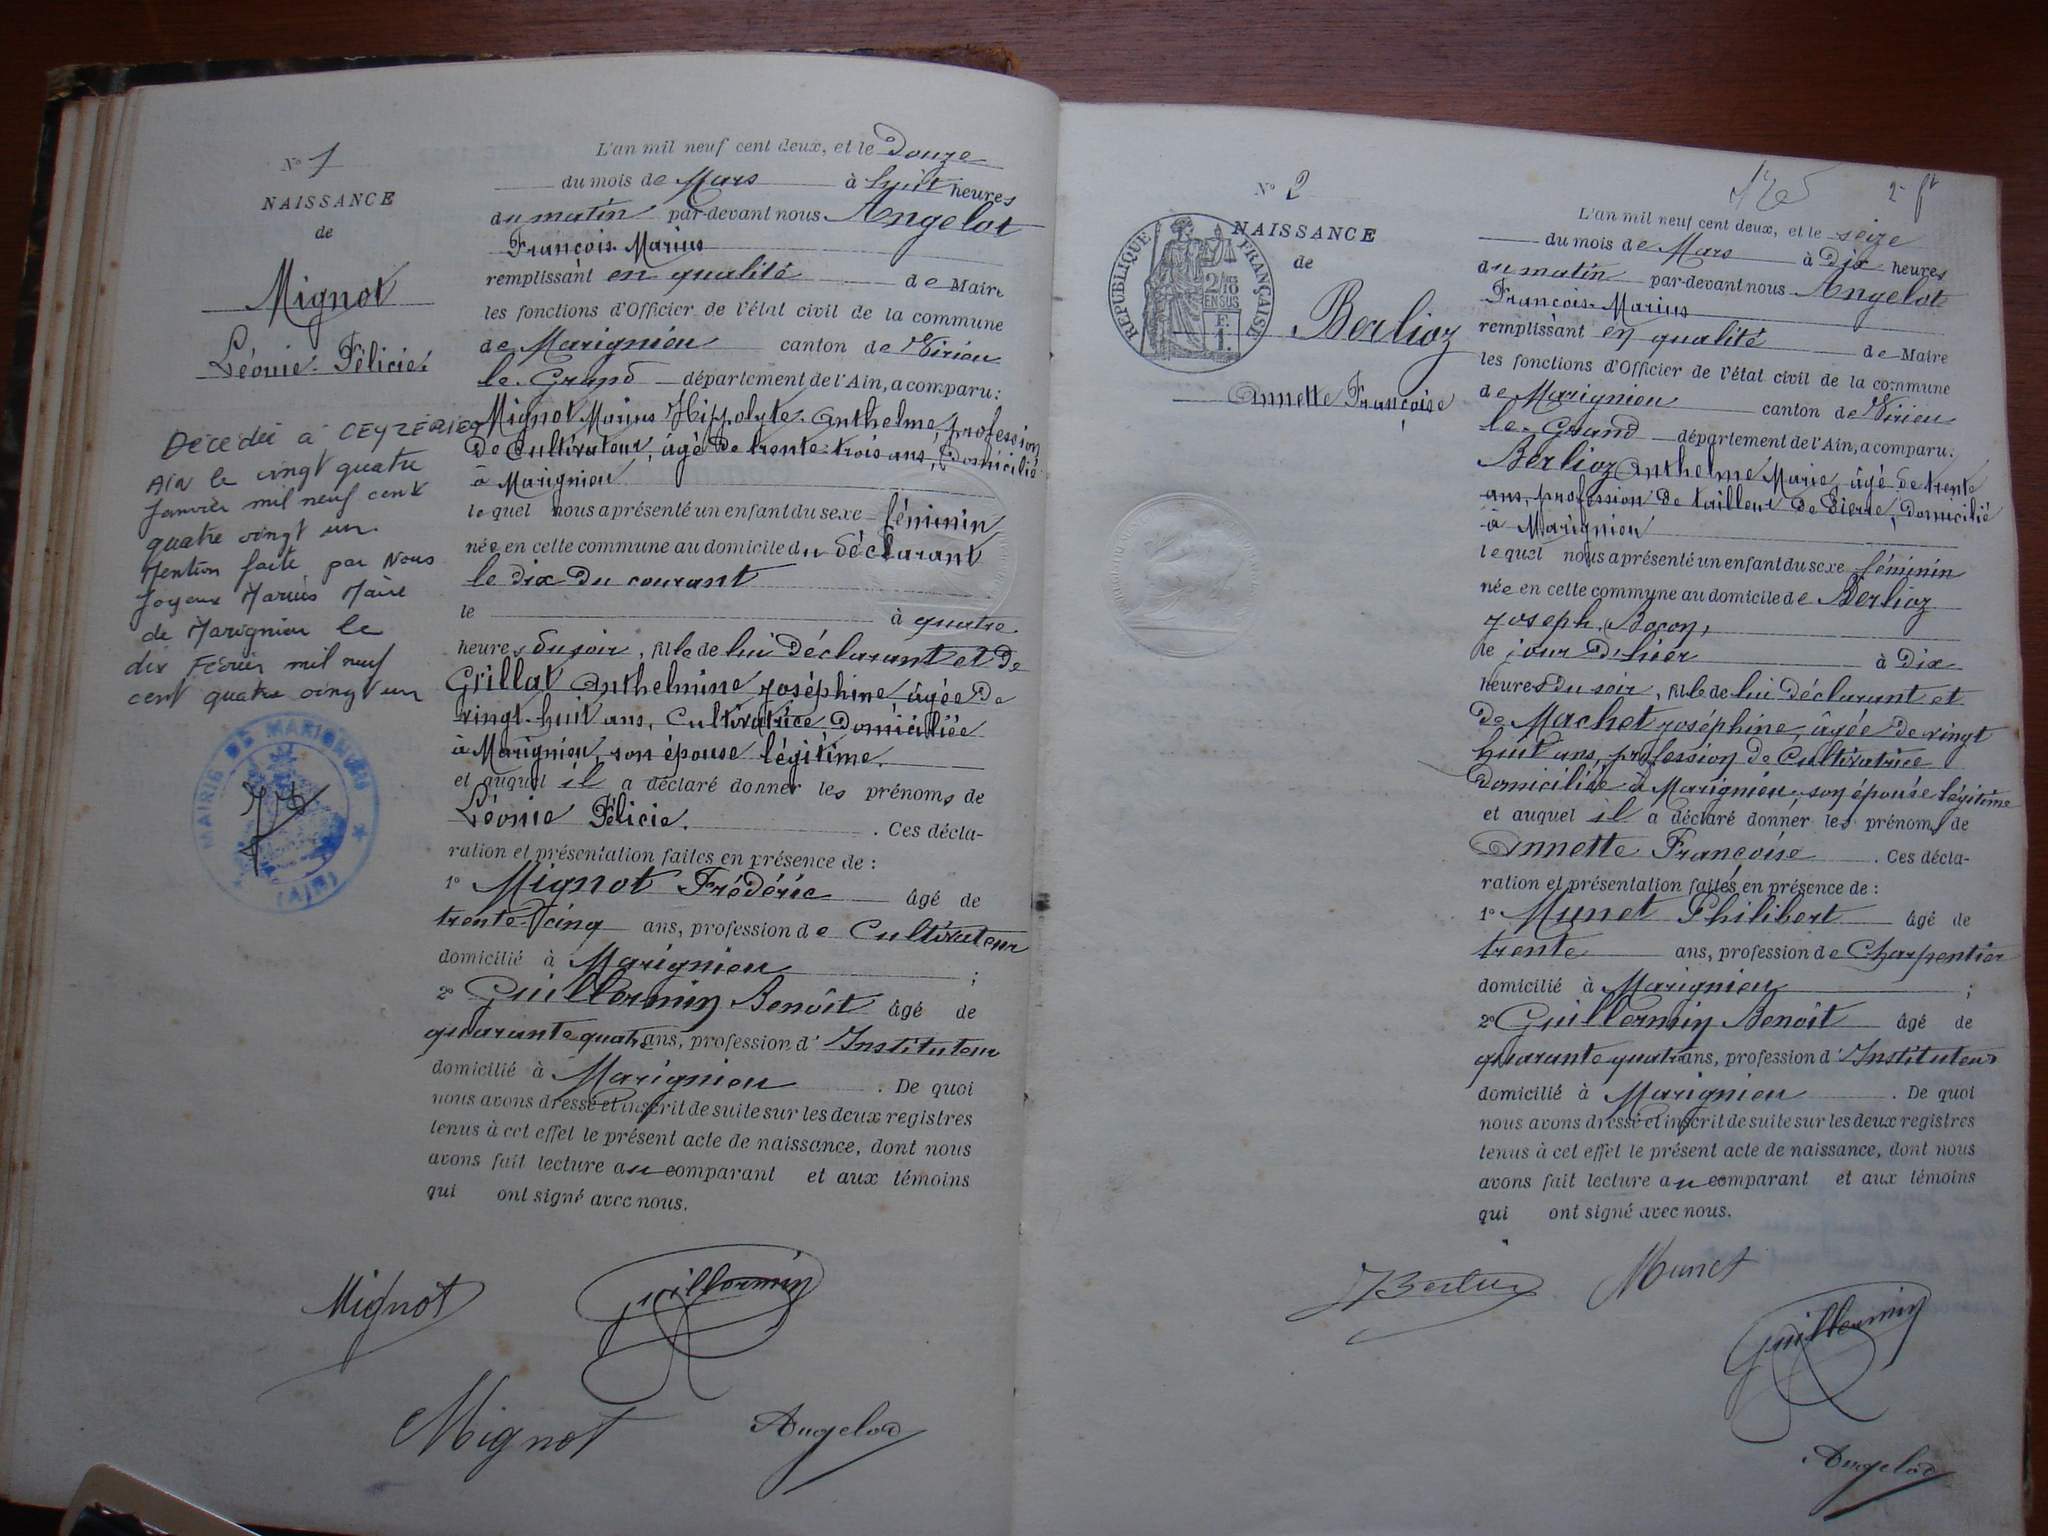 N° 1
NAISSANCE
de
Mignot
Léonie Félicie.
Décédée à CEYZERIEU
Ain le vingt quatre
Janvier mil neuf cent
quatre vingt un
Mention faite par Nous
Joyeux Marius Maire
de Marignieu le
dix Février mil neuf
cent quatre vingt un
MAIRIE DE MARIGNIEU
(AIN)
L'an mil neuf cent deux, et le douze
du mois de Mars à huit heures
du matin par-devant nous Angelot
François-Marius
remplissant en qualité de Maire
les fonctions d'Officier de l'état civil de la commune
de Marignieu canton de Virieu
le-Grand département de l'Ain, a comparu :
Mignot Marius Hippolyte Anthelme, profession
de Cultivateur, âgé de trente-trois ans, domicilié
à Marignieu
lequel nous a présenté un enfant du sexe féminin
née en cette commune au domicile du déclarant
le dix du courant
le à quatre
heures du soir, fille de lui déclarant et de
Grillat Anthelmine Joséphine âgée de
vingt-huit ans, Cultivatrice domiciliée
à Marignieu, son épouse légitime.
et auquel il a déclaré donner les prénoms de
Léonie Félicie. . Ces décla-
ration et présentation faites en présence de :
1° Mignot Frédéric âgé de
trente-cinq ans, profession de Cultivateur
domicilié à Marignieu ;
2° Guillermin Benoît âgé de
quarante quatre ans, profession d'Instituteur
domicilié à Marignieu . De quoi
nous avons dressé et inscrit de suite sur les deux registres
tenus à cet effet le présent acte de naissance, dont nous
avons fait lecture au comparant et aux témoins
qui ont signé avec nous.
Mignot Guillermin
Mignot Angelot
2 ft
N° 2
NAISSANCE
de
RÉPUBLIQUE FRANÇAISE
2/10
EN SUS
F.
1.
Berlioz
Annette Françoise
L'an mil neuf cent deux, et le seize
du mois de Mars à dix heures
du matin par-devant nous Angelot
François-Marius
remplissant en qualité de Maire
les fonctions d'Officier de l'état civil de la commune
de Marignieu canton de Virieu
le-Grand département de l'Ain, a comparu :
Berlioz Anthelme Marie, âgé de trente
ans, profession de tailleur de Pierre, domicilié
à Marignieu
lequel nous a présenté un enfant du sexe féminin
née en cette commune au domicile de Berlioz
Joseph
le jour d'hier à dix
heures du soir, fille de lui déclarant et
de Machet Joséphine, âgée de vingt
huit ans, profession de Cultivatrice
domiciliée à Marignieu, son épouse légitime
et auquel il a déclaré donner les prénoms de
Annette Françoise . Ces décla-
ration et présentation faites en présence de :
1° Munet Philibert âgé de
trente ans, profession de Charpentier
domicilié à Marignieu ;
2° Guillermin Benoît âgé de
quarante quatre ans, profession d'Instituteur
domicilié à Marignieu . De quoi
nous avons dressé et inscrit de suite sur les deux registres
tenus à cet effet le présent acte de naissance, dont nous
avons fait lecture au comparant et aux témoins
qui ont signé avec nous.
Berlioz Munet
Guillermin
Angelot